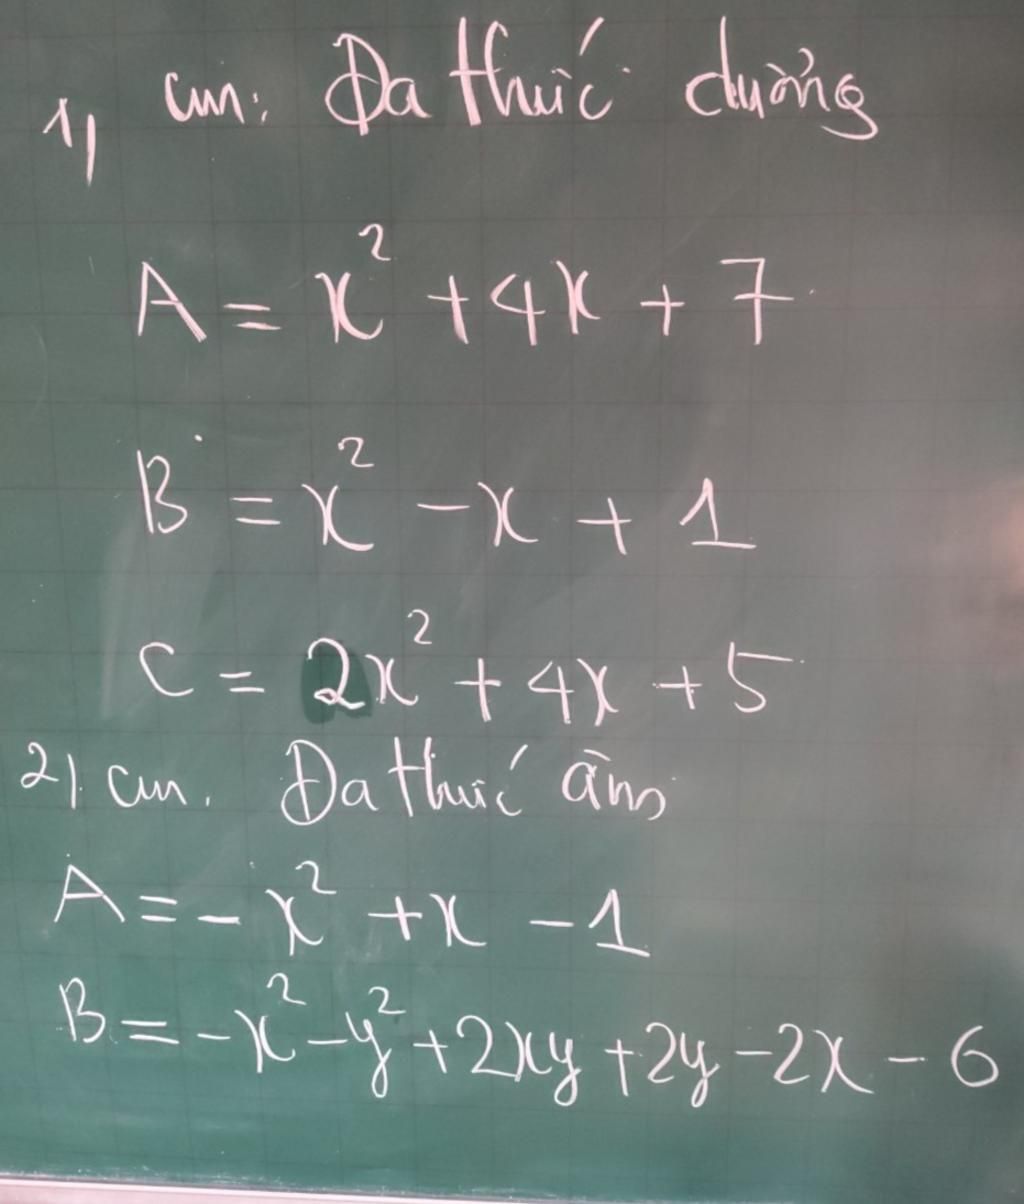 1) cm: Đa thức dương
A = x² + 4x + 7
B = x² - x + 1
C = 2x² + 4x + 5
2) cm. Đa thức âm
A = - x² + x - 1
B = - x² - y² + 2xy + 2y - 2x - 6